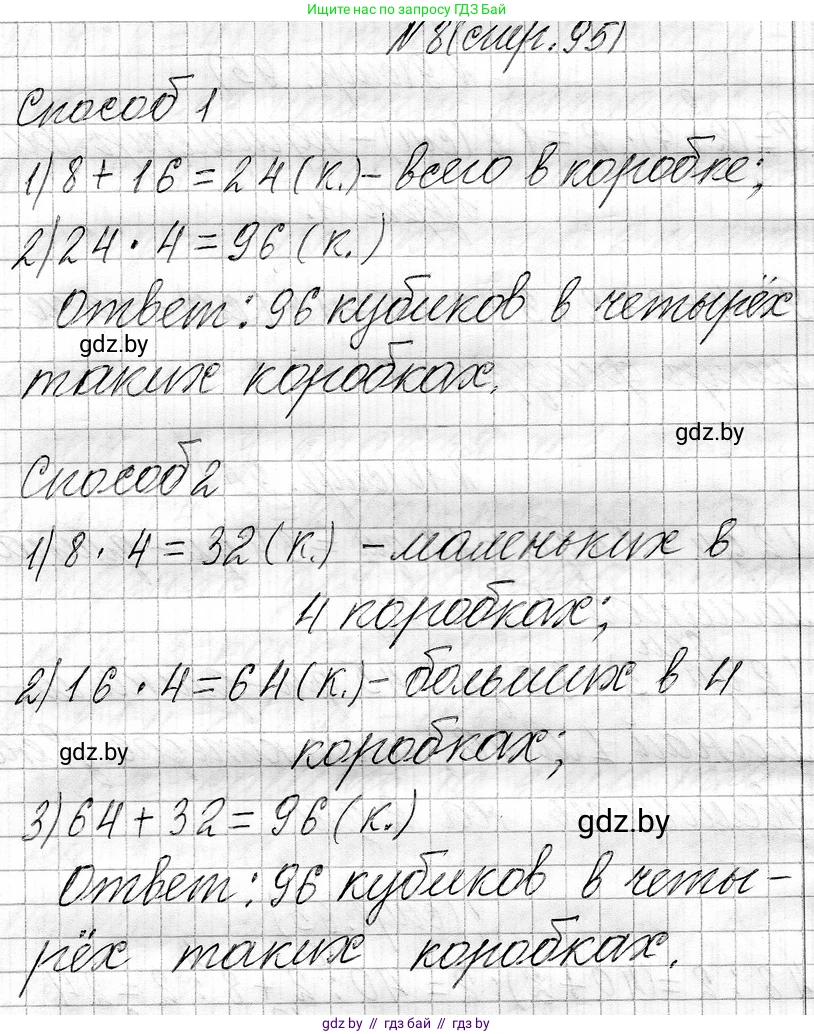 Ищите нас по запросу ГДЗ Бай
№8(стр.95)
Способ 1
1) 8 + 16 = 24 (к.) - всего в коробке;
2) 24 · 4 = 96 (к.)
Ответ: 96 кубиков в четырёх
gdz.by
таких коробках.
gdz.by
Способ 2
1) 8 · 4 = 32 (к.) - маленьких в
4 коробках;
2) 16 · 4 = 64 (к.) - больших в 4
gdz.by
коробках;
3) 64 + 32 = 96 (к.)
gdz.by
Ответ: 96 кубиков в четы-
рёх таких коробках.
gdz.by // гдз бай // gdz by